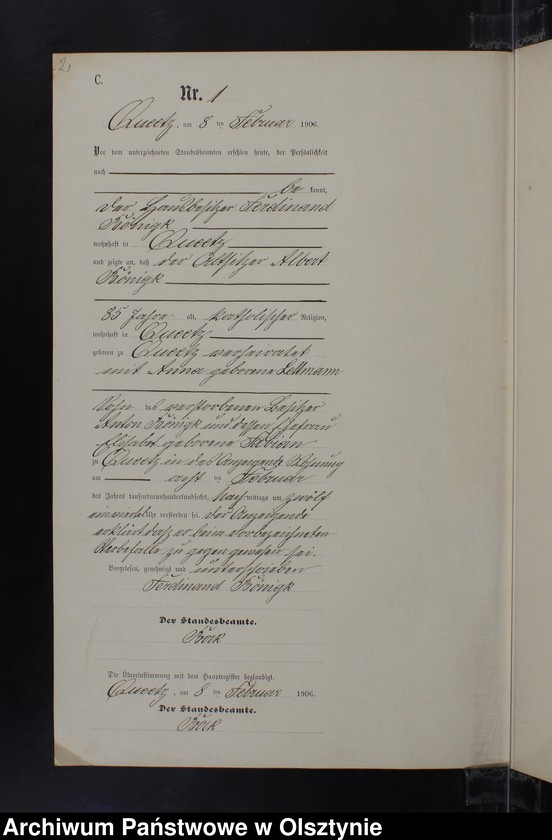 2,
C.
Nr. 1
Queetz, am 8 ten Februar 1906.
Vor dem unterzeichneten Standesbeamten erschien heute, der Persönlichkeit
nach
be kannt,
der Hausbesitzer Ferdinand
Königk
wohnhaft in Queetz
und zeigte an, daß der Altsitzer Albert
Königk
85 Jahre alt, katholischer Religion,
wohnhaft in Queetz
geboren zu Queetz verheiratet
mit Anna geborene Lettmann
Sohn des verstorbenen Besitzer
Anton Königk und dessen Ehefrau
Elisabet geborene Fabian
zu Queetz in des Anzeigende Wohnung
am acht ten Februar
des Jahres tausendneunhundertundsechs, Nach mittags um zwölf
einviertel Uhr verstorben sei. Der Anzeigende
erklärt daß er beim vorbezeichneten
Sterbefalle zu gegen gewesen sei.
Vorgelesen, genehmigt und unterschrieben
Ferdinand Königk
Der Standesbeamte.
Böck
Die Übereinstimmung mit dem Hauptregister beglaubigt.
Queetz, am 8 ten Februar 1906.
Der Standesbeamte.
Böck
Archiwum Państwowe w Olsztynie